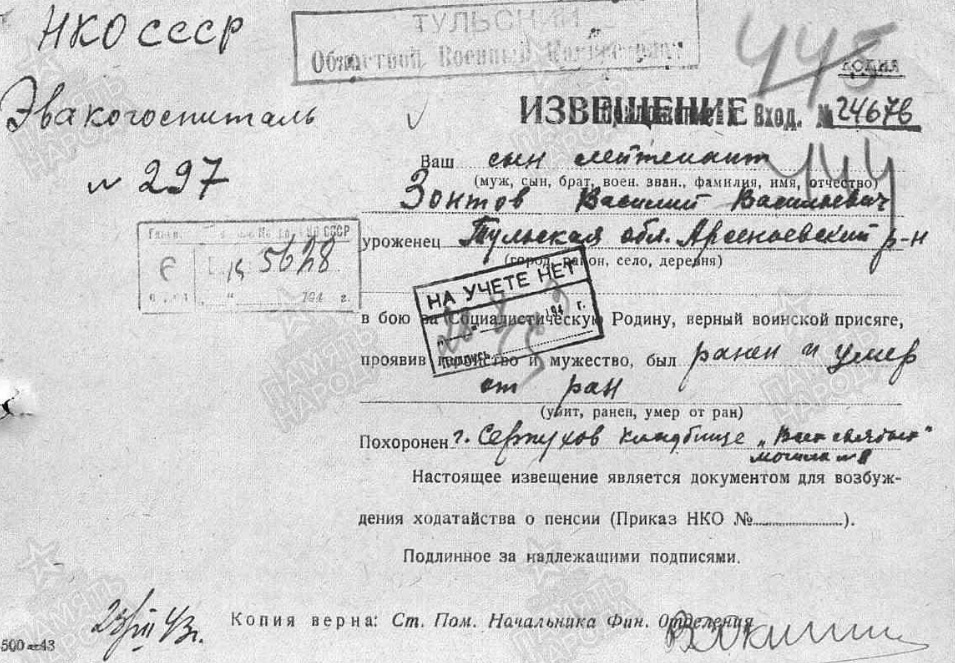 НКО СССР
ТУЛЬСКИЙ
Областной Военный Комиссариат
445
КОПИЯ
Эвакогоспиталь
№ 297
ИЗВЕЩЕНИЕ Вход. № 24676
444
Ваш сын лейтенант
(муж, сын, брат, воен. зван., фамилия, имя, отчество)
Зонтов Василий Васильевич
уроженец Тульская обл. Арсеньевский р-н
(город, район, село, деревня)
5628
194 г.
НА УЧЕТЕ НЕТ
194 г.
подпись
в бою за Социалистическую Родину, верный воинской присяге,
проявив геройство и мужество, был ранен и умер
от ран
(убит, ранен, умер от ран)
Похоронен г. Серпухов кладбище „Всех святых"
могила №
Настоящее извещение является документом для возбуж-
дения ходатайства о пенсии (Приказ НКО № ).
Подлинное за надлежащими подписями.
Копия верна: Ст. Пом. Начальника Фин. Отделения
43г.
500—43
ПАМЯТЬ НАРОДА